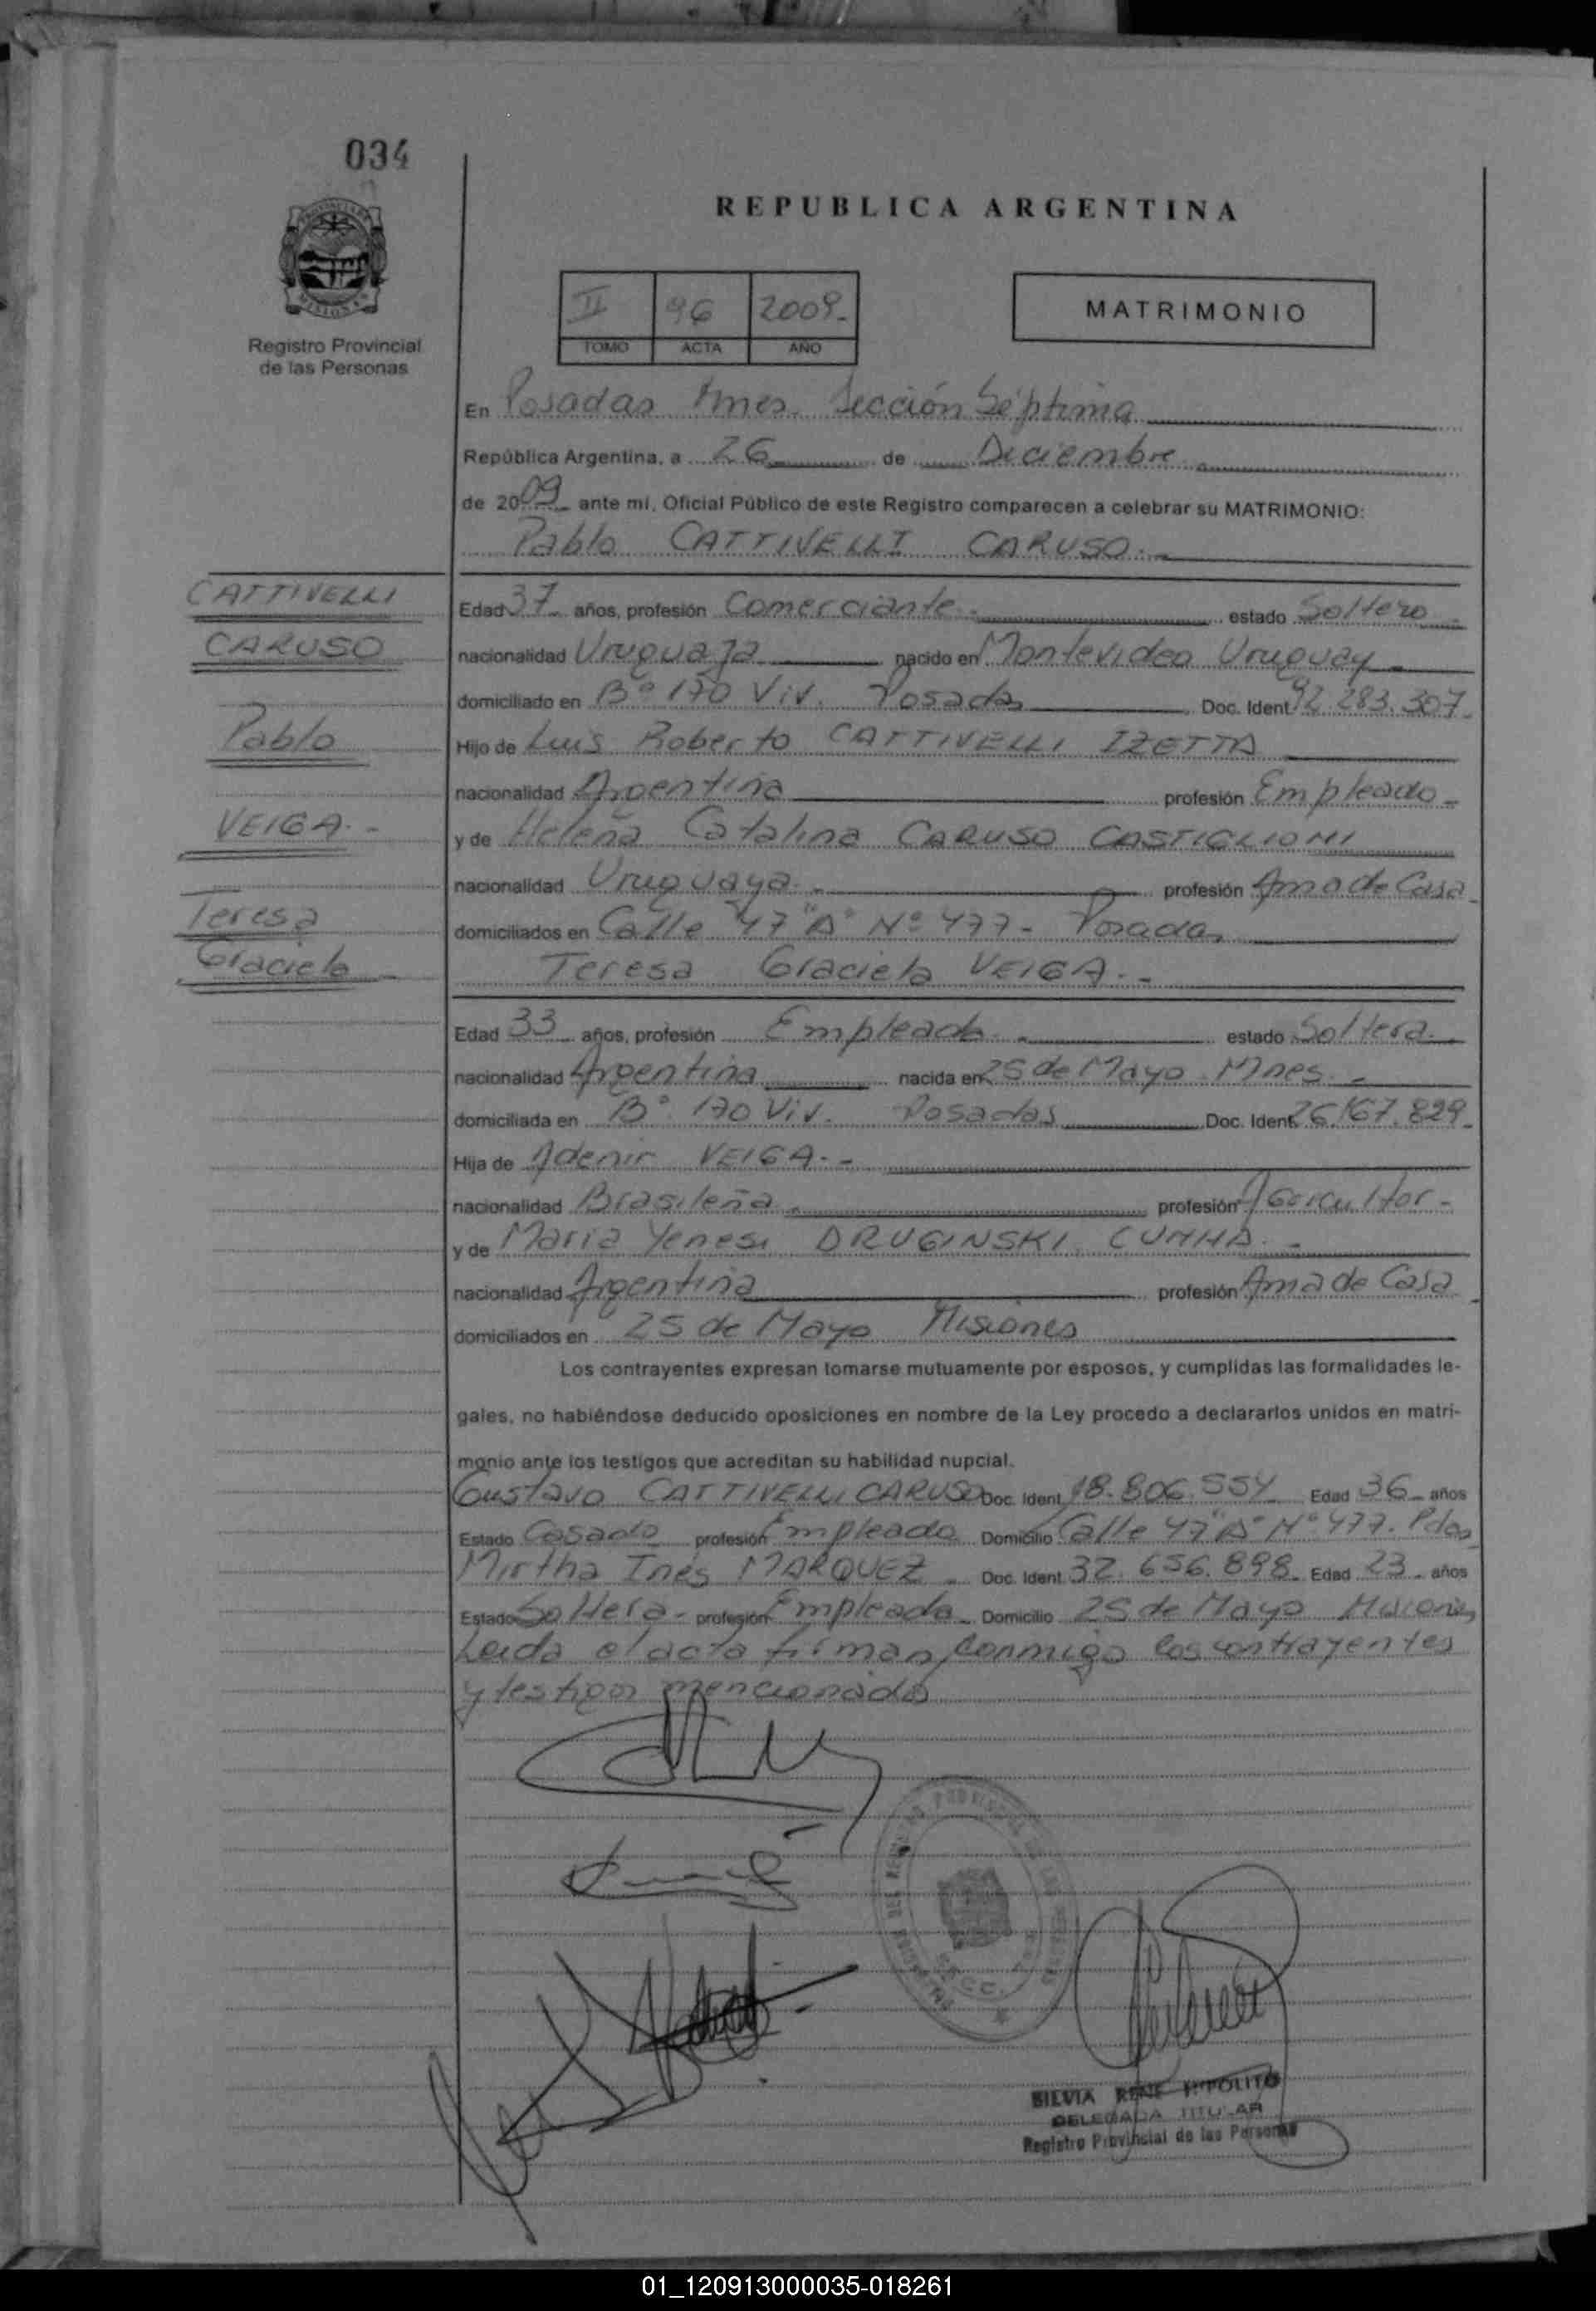 034
REPUBLICA ARGENTINA
Registro Provincial
de las Personas
II 96 2009.-
TOMO ACTA AÑO
MATRIMONIO
En Posadas Mnes. Sección Séptima
República Argentina, a 26 de Diciembre
de 2009 ante mi, Oficial Público de este Registro comparecen a celebrar su MATRIMONIO:
Pablo CATTIVELLI CARUSO.-
CATTIVELLI
CARUSO
Pablo
VEIGA.-
Teresa
Graciela
Edad 37 años, profesión Comerciante.- estado Soltero
nacionalidad Uruguaya nacido en Montevideo Uruguay
domiciliado en B° 170 Viv. Posadas Doc. Ident. 92.283.307.
Hijo de Luis Roberto CATTIVELLI IZETTA
nacionalidad Argentina profesión Empleado-
y de Helena Catalina CARUSO CASTIGLIONI
nacionalidad Uruguaya.- profesión Ama de Casa
domiciliados en Calle 47 "A" N° 477- Posadas
Teresa Graciela VEIGA.-
Edad 33 años, profesión Empleada.- estado Soltera.
nacionalidad Argentina nacida en 25 de Mayo Mnes.-
domiciliada en B° 170 Viv. Posadas Doc. Ident. 26.167.829
Hija de Adenir VEIGA.-
nacionalidad Brasileña profesión Agricultor-
y de Maria Yenesi DRUGINSKI CUNHA.-
nacionalidad Argentina profesión Ama de Casa
domiciliados en 25 de Mayo Misiones
Los contrayentes expresan tomarse mutuamente por esposos, y cumplidas las formalidades le-
gales, no habiéndose deducido oposiciones en nombre de la Ley procedo a declararlos unidos en matri-
monio ante los testigos que acreditan su habilidad nupcial.
Gustavo CATTIVELLI CARUSO Doc. Ident. 18.806.554 Edad 36 años
Estado Casado profesión Empleado Domicilio Calle 47 "A" N° 477. Pdas
Mirtha Inés MARQUEZ Doc. Ident. 32.656.898. Edad 23 años
Estado Soltera- profesión Empleada Domicilio 25 de Mayo Misiones
Leida el acta firman conmigo los contrayentes
y testigos mencionados
SILVIA RENE HIPOLITO
DELEGADA TITULAR
Registro Provincial de las Personas
01_120913000035-018261